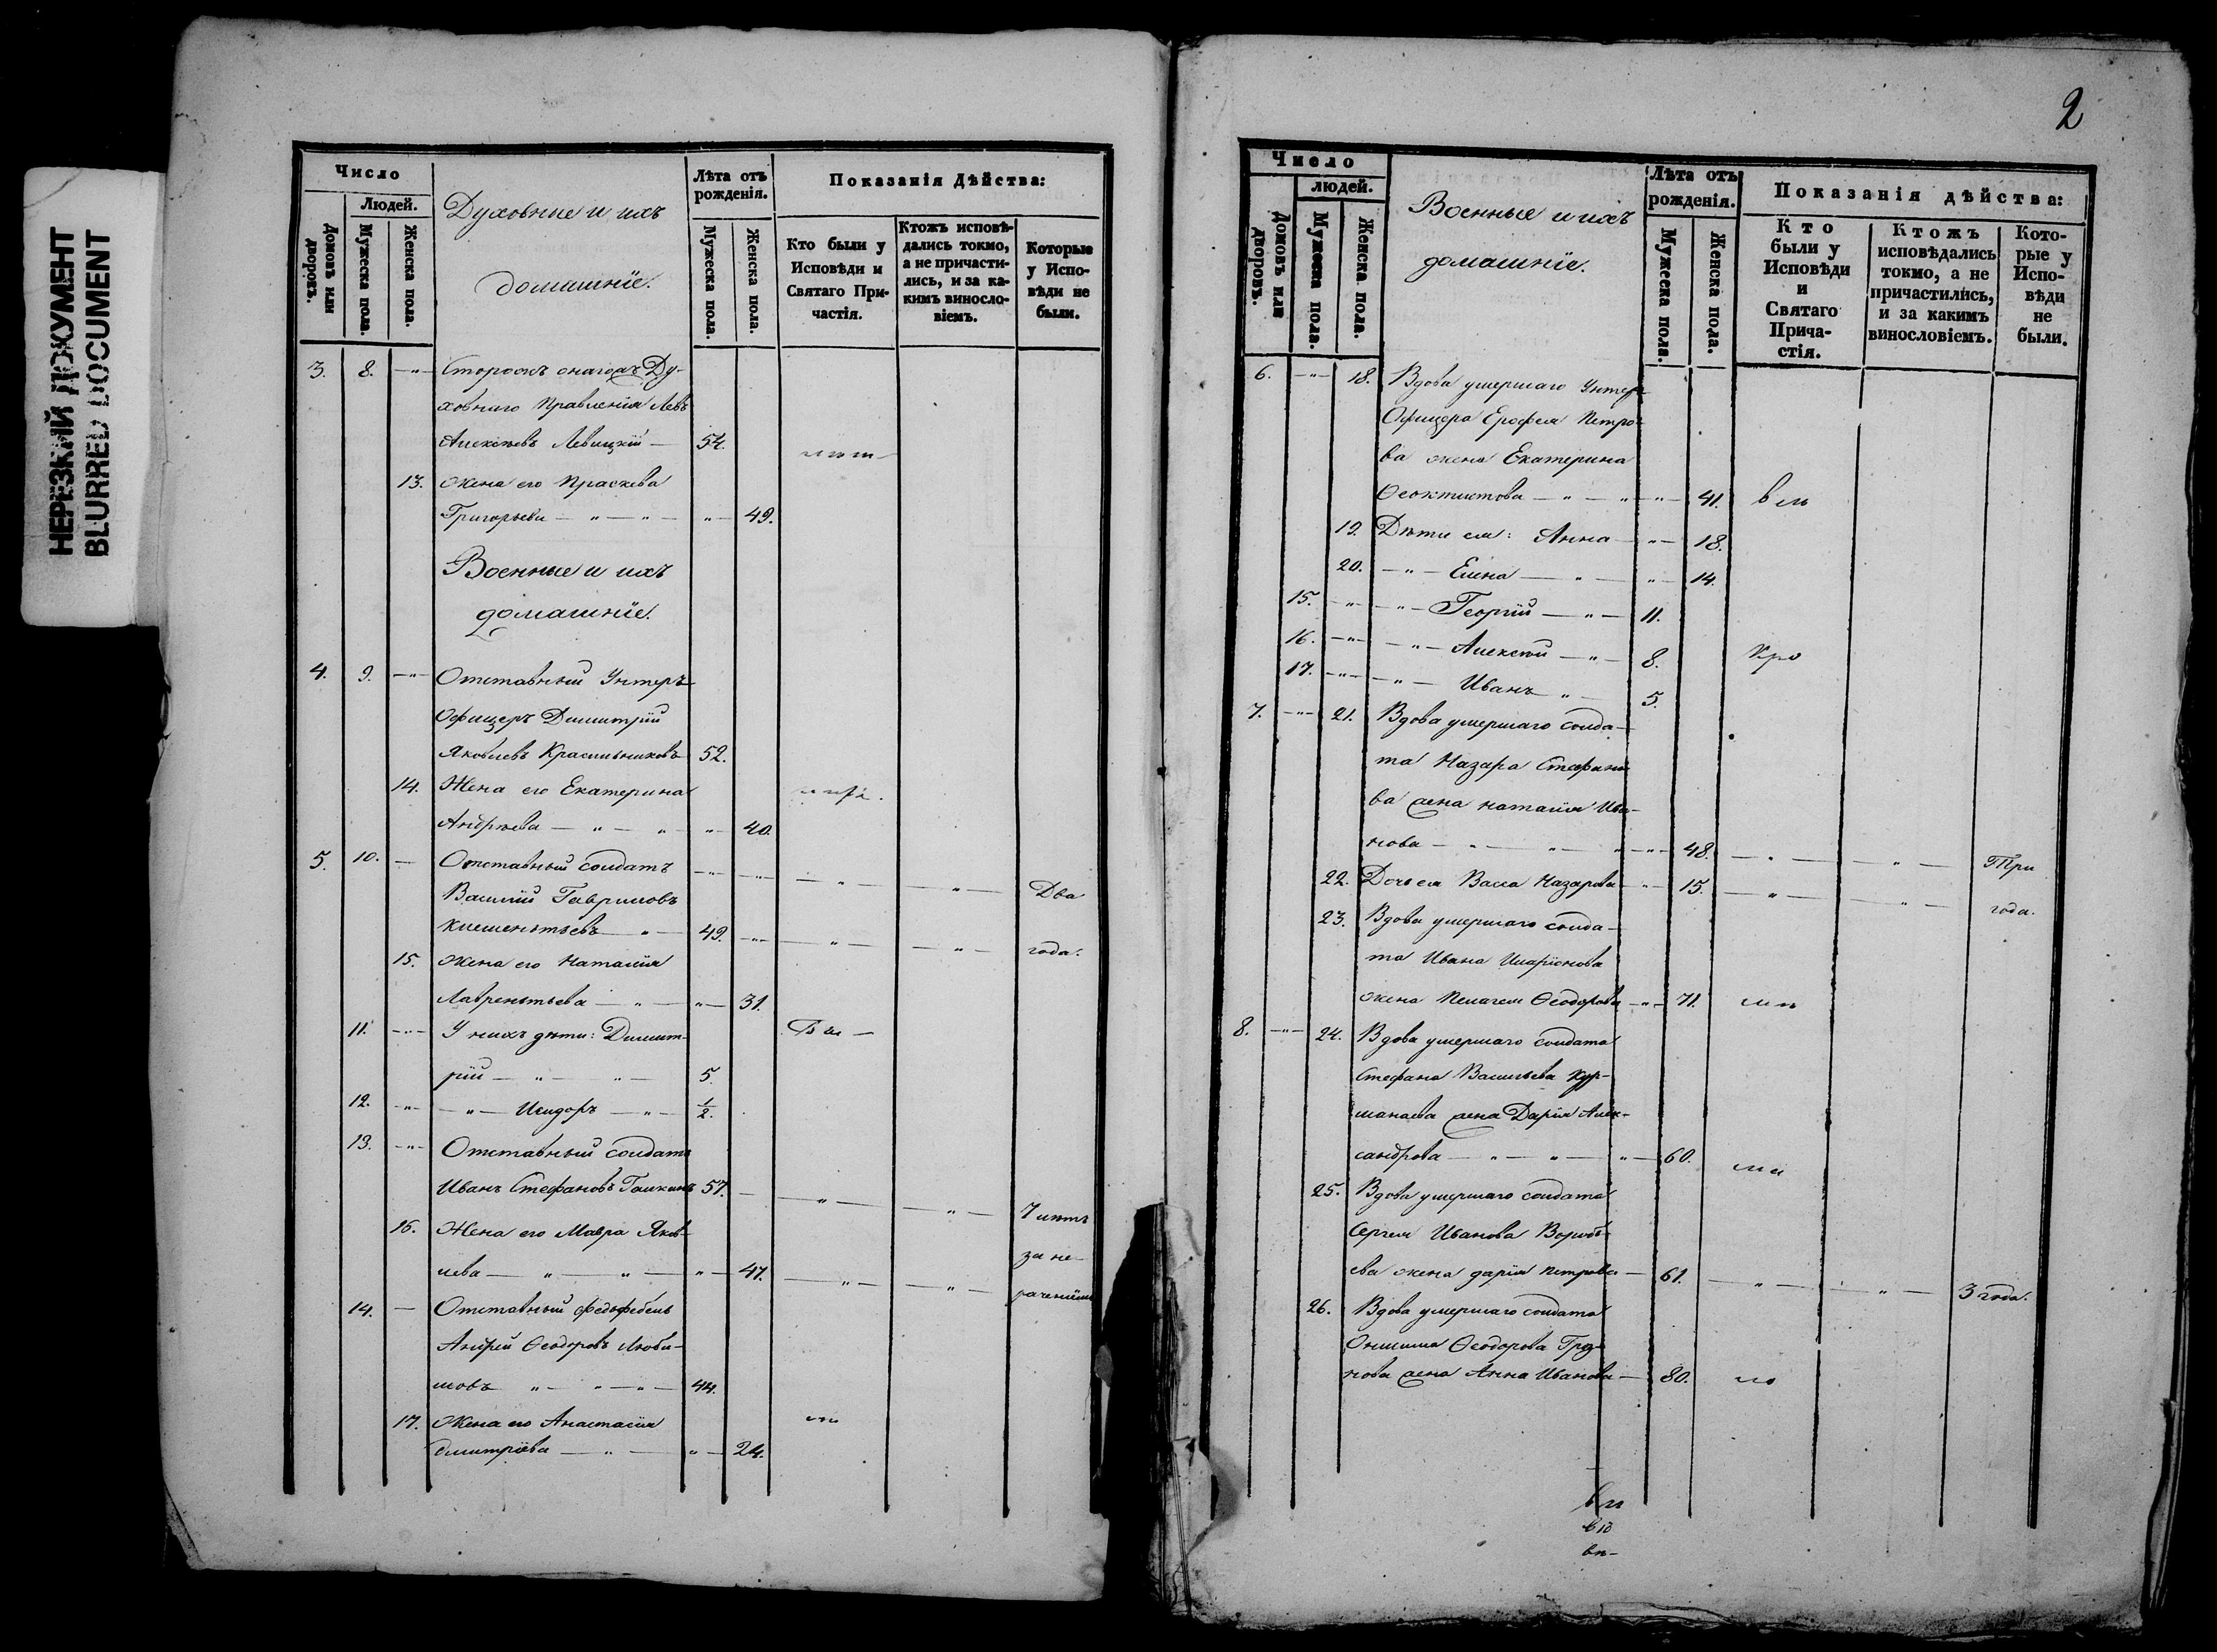 НЕРЕЗКИЙ ДОКУМЕНТ
BLURRED DOCUMENT
Число
Людей.
Домовъ или дворовъ.
Мужеска пола.
Женска пола.
Духовные и ихъ
домашніе.
Лѣта отъ рожденія.
Мужеска пола.
Женска пола.
Показанія Дѣйства:
Кто были у Исповѣди и Святаго При-
частія.
Ктожъ исповѣ-
дались токмо,
а не причасти-
лись, и за ка-
кимъ винosло-
віемъ.
Которые
у Испо-
вѣди не
были.
3. 8. —"— Сторожъ онагожъ Ду-
ховнаго Правленія Левъ
Алексѣевъ Левицкій — 54.
13. Жена его Праскева
Григорьева — " — " — " — 49.
Военные и ихъ
домашніе.
4. 9. —"— Отставный Унтеръ
Офицеръ Димитрій
Яковлевъ Красильниковъ 52.
14. Жена его Екатерина
Андрѣева — " — " — " — 40.
5. 10. — Отставный солдатъ —"— —"— — " — — " — Два
Василій Гавриловъ
Клементьевъ — " — 49. —"— — " — — " — года.
15. Жена его Наталія
Лаврентьева — " — " — 31.
11. —"— У нихъ дѣти: Димит-
рій — " — " — 5.
12. —"— — " — Исидоръ — " — 1/2.
13. —"— Отставный солдатъ
Иванъ Стефановъ Галкинъ 57. — — " — — " — 7 лѣтъ
16. Жена его Мавра Яков-
за не-
лева — " — " — " — 47. — " — — " — раченіемъ
14. — Отставный фельдфебель
Андрей Ѳеодоровъ Люби-
мовъ " — " — " — 44.
17. Жена его Анастасія
Димитріева — " — " — 24.
2
Число
людей.
Домовъ или дворовъ.
Мужеска пола.
Женска пола.
Военные и ихъ
домашніе.
Лѣта отъ
рожденія.
Мужеска пола.
Женска пола.
Показанія дѣйства:
Кто
были у
Исповѣди
и
Святаго
Прича-
стія.
Ктожъ
исповѣдались
токмо, а не
причастились,
и за какимъ
винословіемъ.
Кото-
рые у
Испо-
вѣди
не
были.
6. —"— 18. Вдова умершаго Унтеръ
Офицера Ерофея Петро-
ва жена Екатерина
Ѳеоктистова — " — " — " — 41.
19. Дѣти ея: Анна — " — 18.
20. — " — Елена — " — " — 14.
15. —"— — " — Георгій — " — 11.
16. —"— — " — Алексѣй — " — 8.
17. —"— — " — Иванъ " — 5.
7. —"— 21. Вдова умершаго солда-
та Назара Стефано-
ва жена Наталія Ива-
нова — " — " — " — " — 48. — " — — " — Три
22. Дочь ея Васса Назарова — " — 15. — " — — " — года.
23. Вдова умершаго солда-
та Ивана Иларіонова
жена Пелагея Ѳеодорова — " — 71.
8. —"— 24. Вдова умершаго солдата
Стефана Васильева Кур-
манаева жена Дарія Алек-
сандрова — " — " — " — 60.
25. Вдова умершаго солдата
Сергея Иванова Воробь-
ева жена Дарія Петрова — 61. — " — — " — 3 года.
26. Вдова умершаго солдата
Онисима Ѳеодорова
жена Анна Иванова — 80.